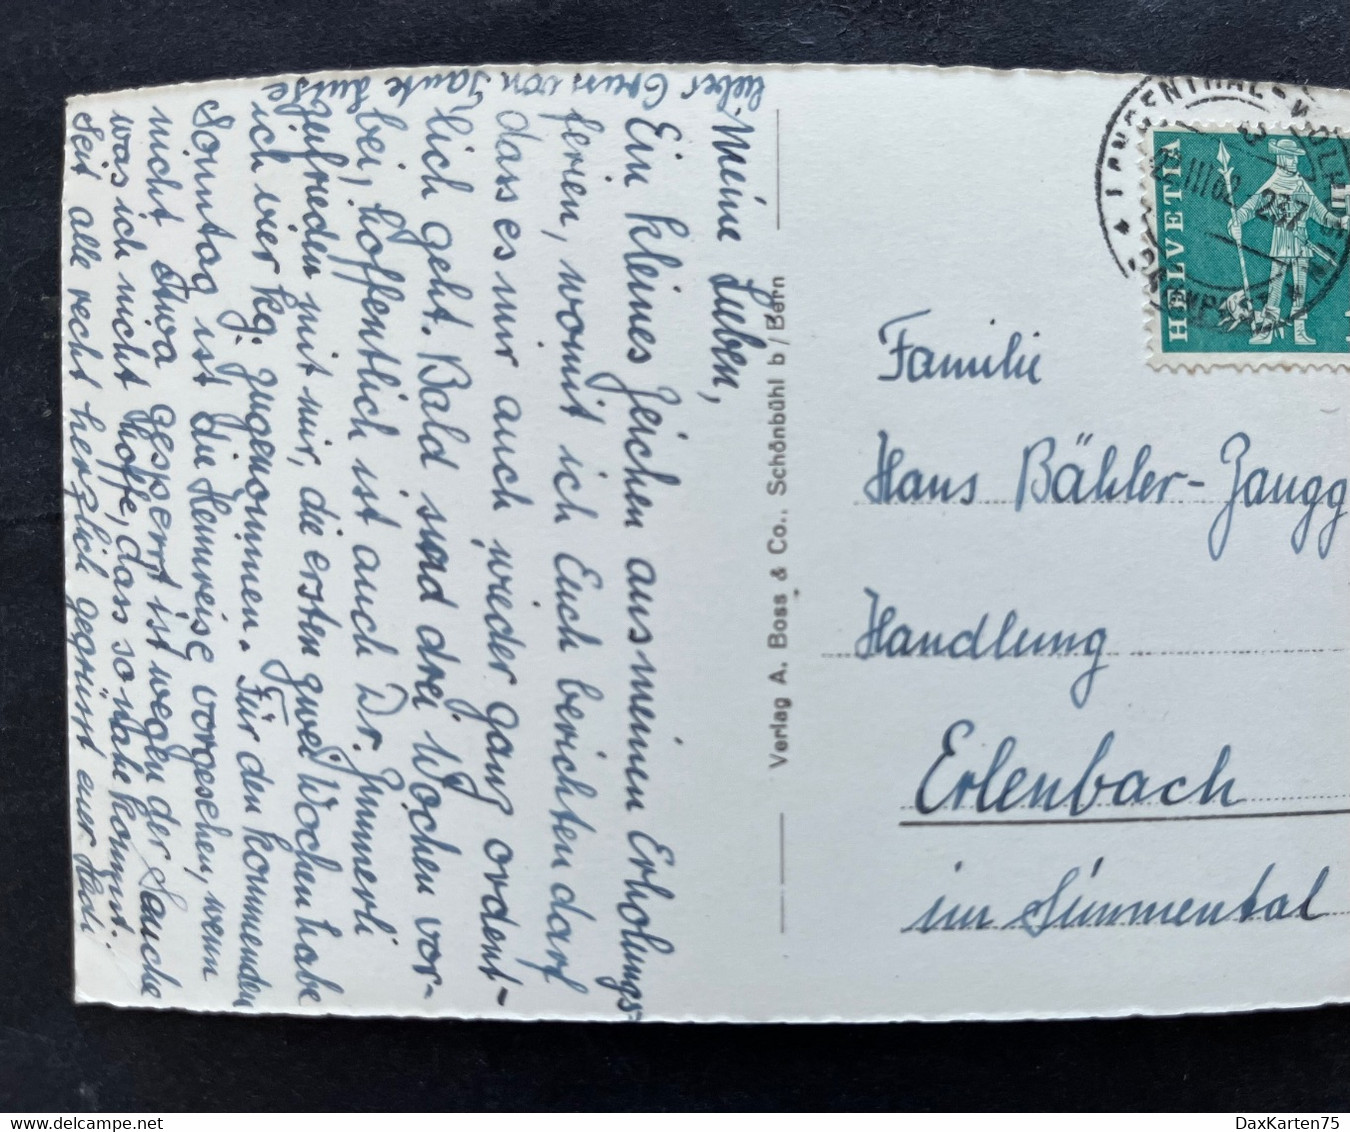 lieber Gruss von Tante Luise
Meine Lieben,
Ein kleines Zeichen aus meinen Erholungs-
ferien, womit ich Euch berichten darf
dass es mir auch wieder ganz ordent-
lich geht. Bald sind drei Wochen vor-
bei, hoffentlich ist auch Dr. Zimmerli
zufrieden mit mir, die ersten zwei Wochen habe
ich vier kg. zugenommen. Für den kommenden
Sonntag ist die Heimreise vorgesehen, wenn
nicht etwa gesperrt ist wegen der Seuche
was ich nicht hoffe, dass so nahe kommt.
Seit alle recht herzlich gegrüsst euer
Verlag A. Boss & Co., Schönbühl b/Bern
HELVETIA
LANGENTHAL
III 62
Familie
Hans Bähler-Zaugg
Handlung
Erlenbach
im Simmental
DaxKarten75